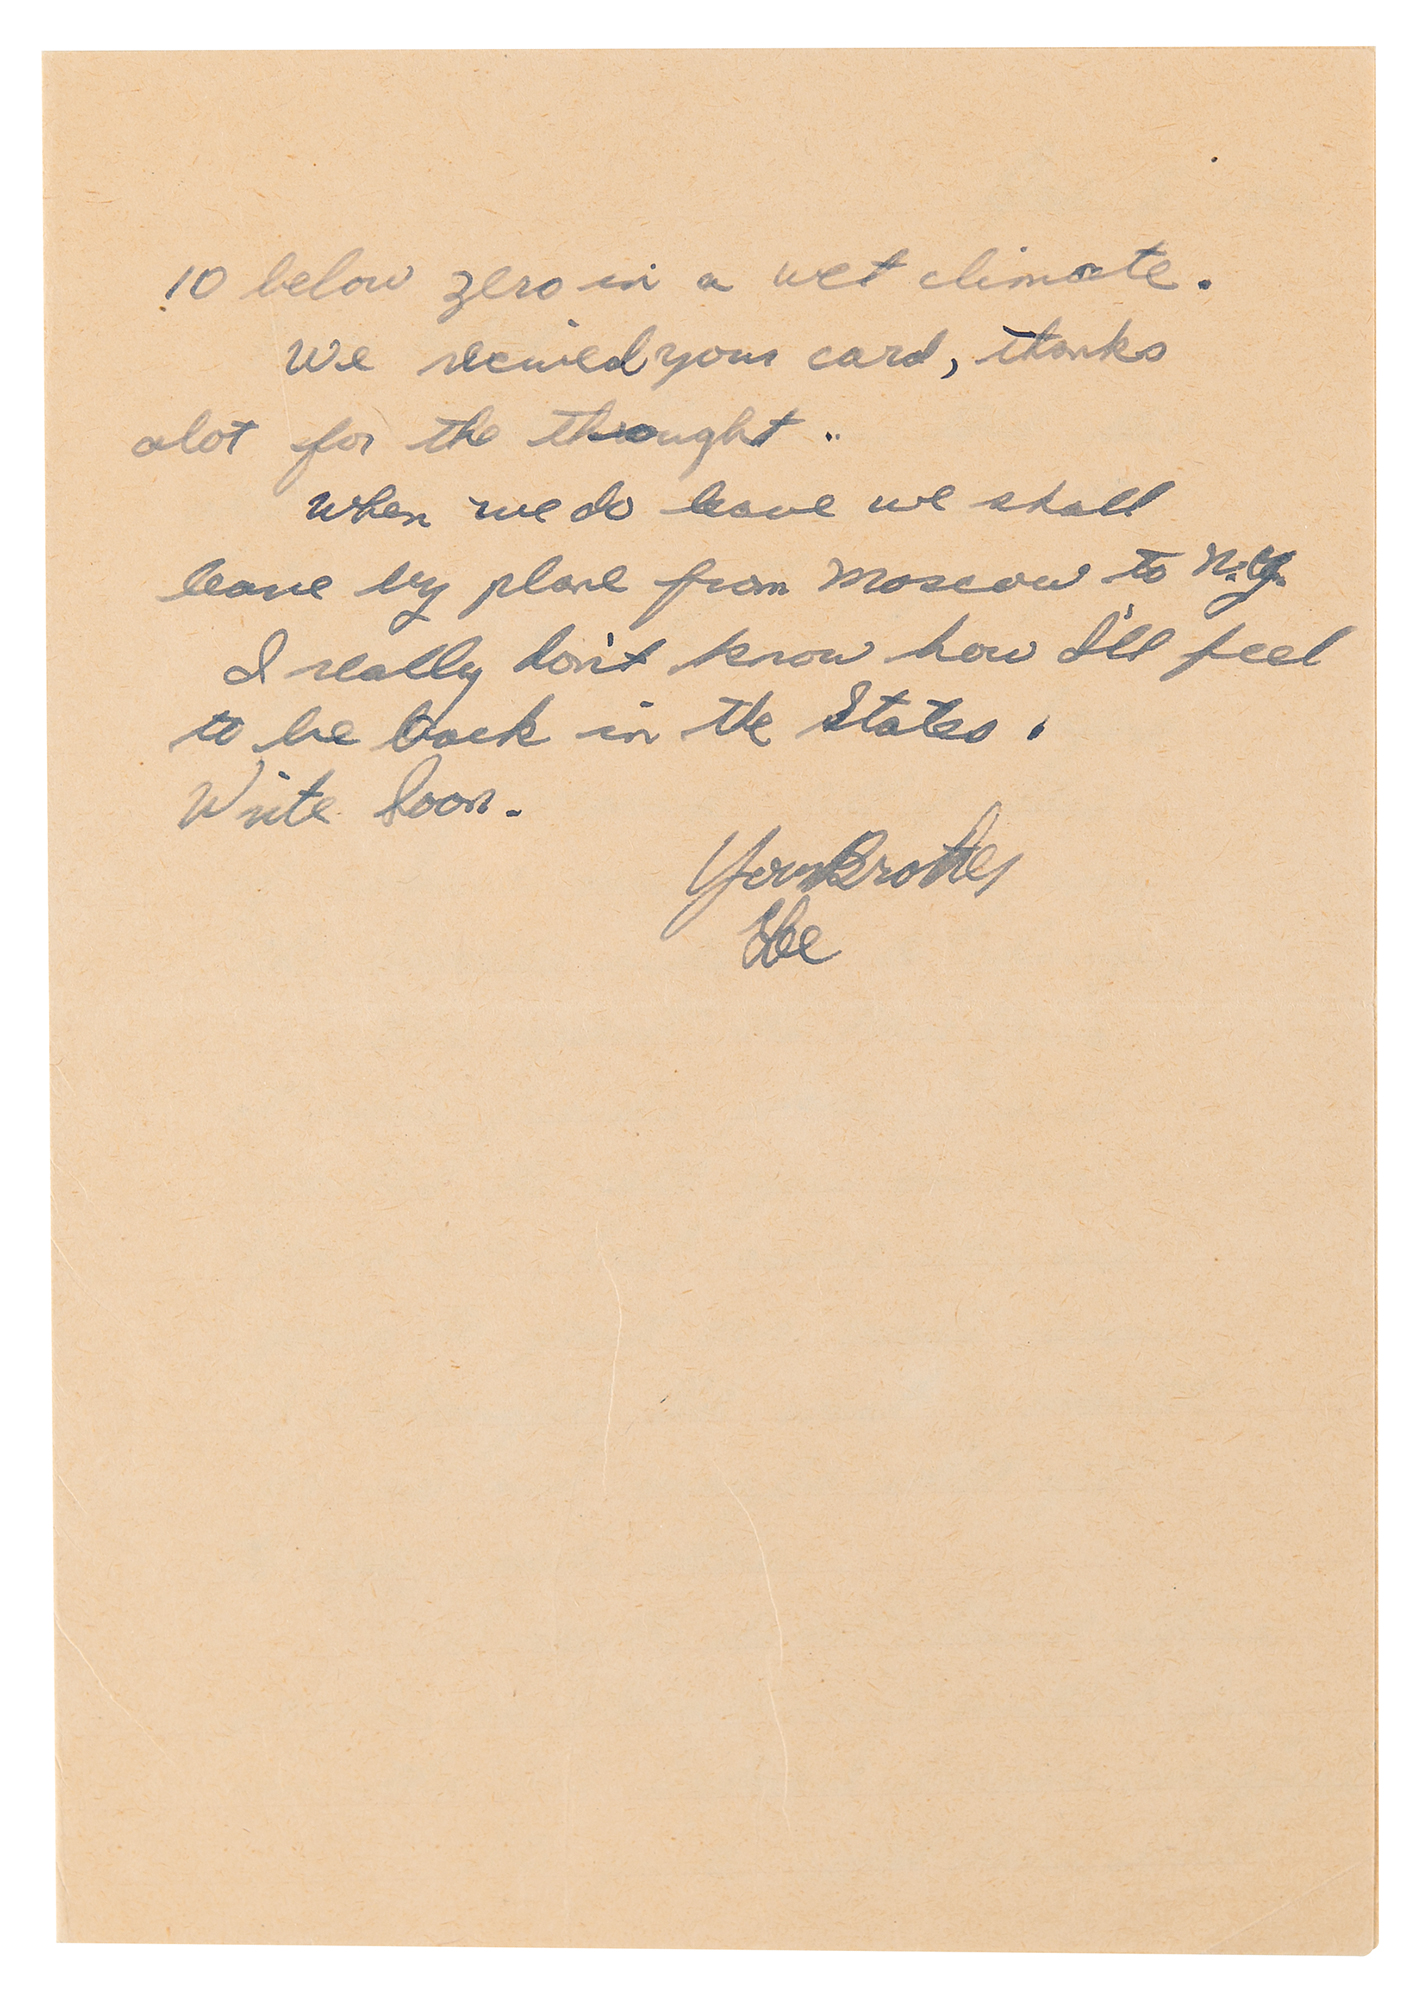 10 below zero in a wet climate.
We recived your card, thanks
alot for the thought..
When we do leave we shall
leave by plane from Moscow to N.Y.
I really don't know how I'll feel
to be back in the States.
Write Soon.
Your Brother
Lee